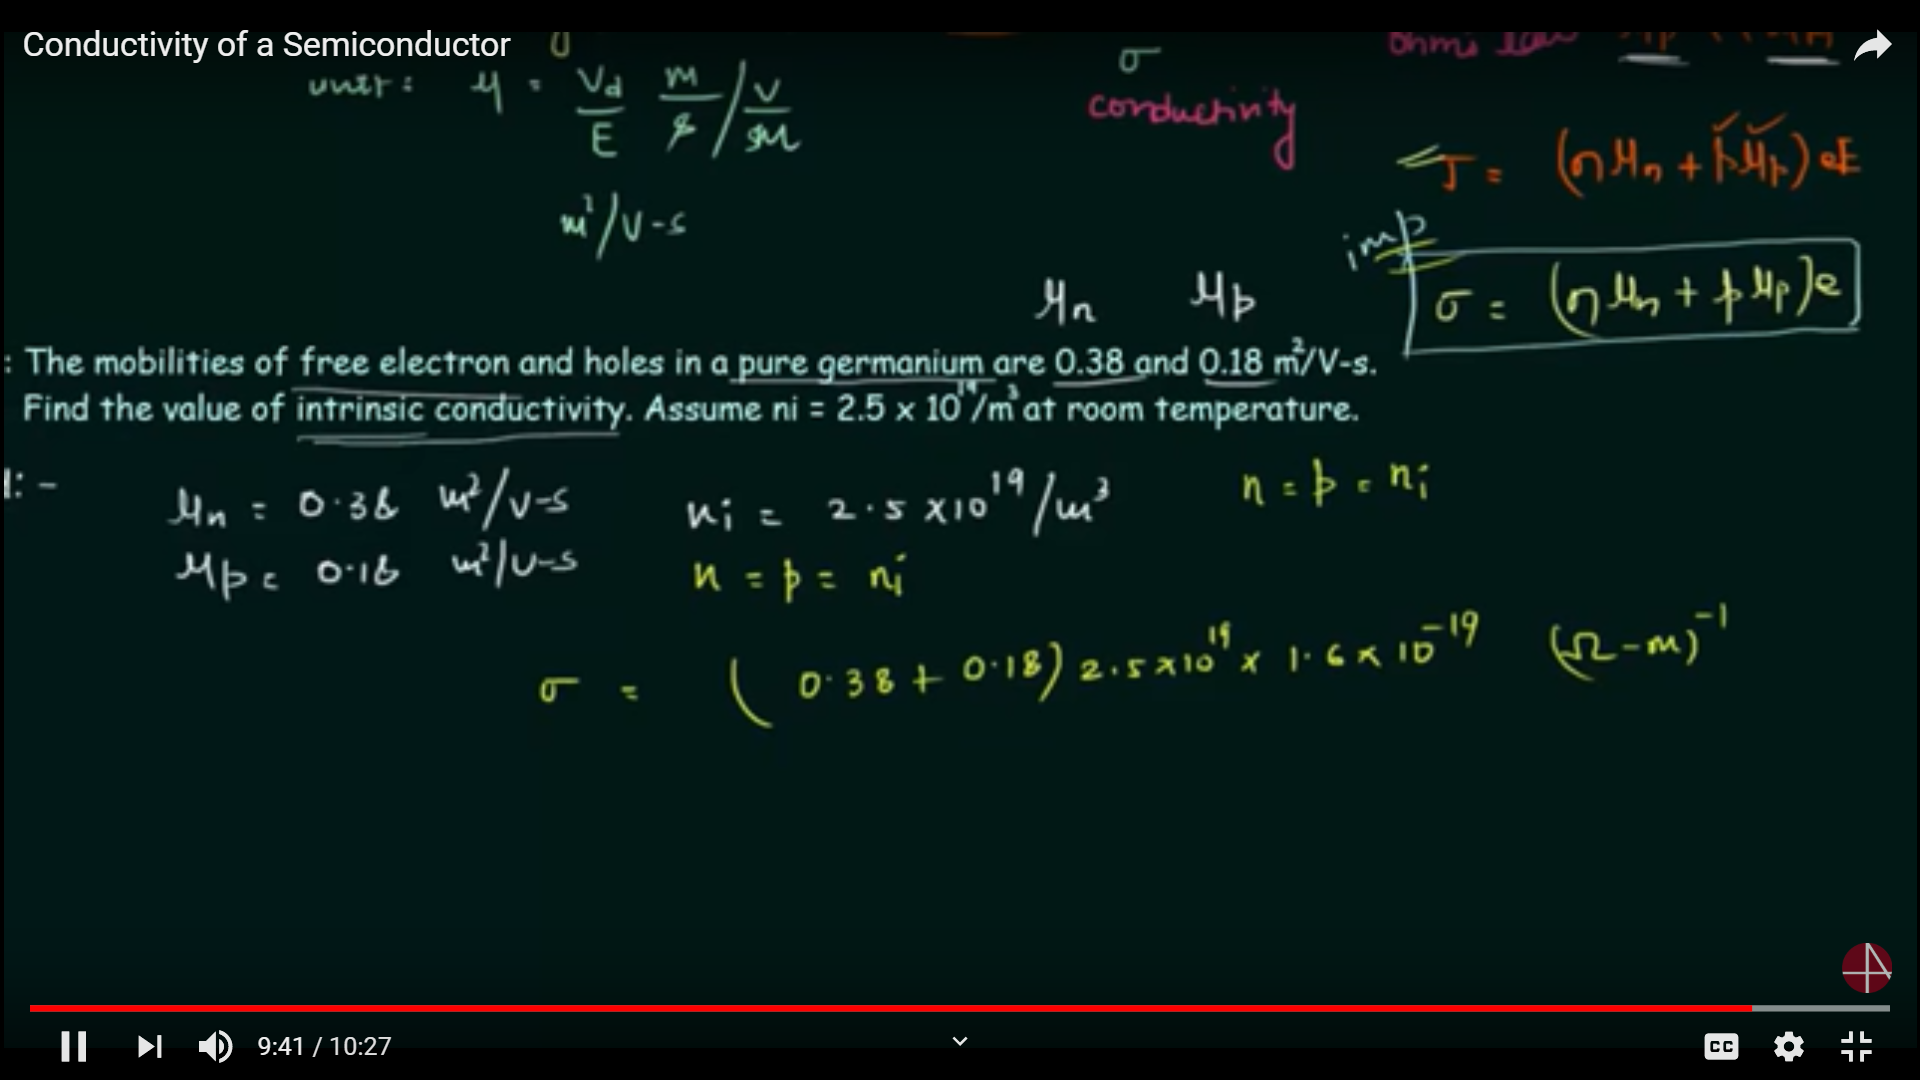 Conductivity of a Semiconductor
unit: μ = Vd/E m/s / V/m
σ
conductivity
ohms law
m²/V-s
J = (nμn + pμp) eE
imp
σ = (nμn + pμp)e
μn μp
: The mobilities of free electron and holes in a pure germanium are 0.38 and 0.18 m²/V-s.
Find the value of intrinsic conductivity. Assume ni = 2.5 x 10¹⁹/m³ at room temperature.
:-
μn = 0.38 m²/V-s ni = 2.5 x10¹⁹/m³ n = p = ni
μp = 0.18 m²/V-s n = p = ni
σ = (0.38 + 0.18) 2.5 x10¹⁹ x 1.6 x 10⁻¹⁹ (Ω-m)⁻¹
9:41 / 10:27
CC